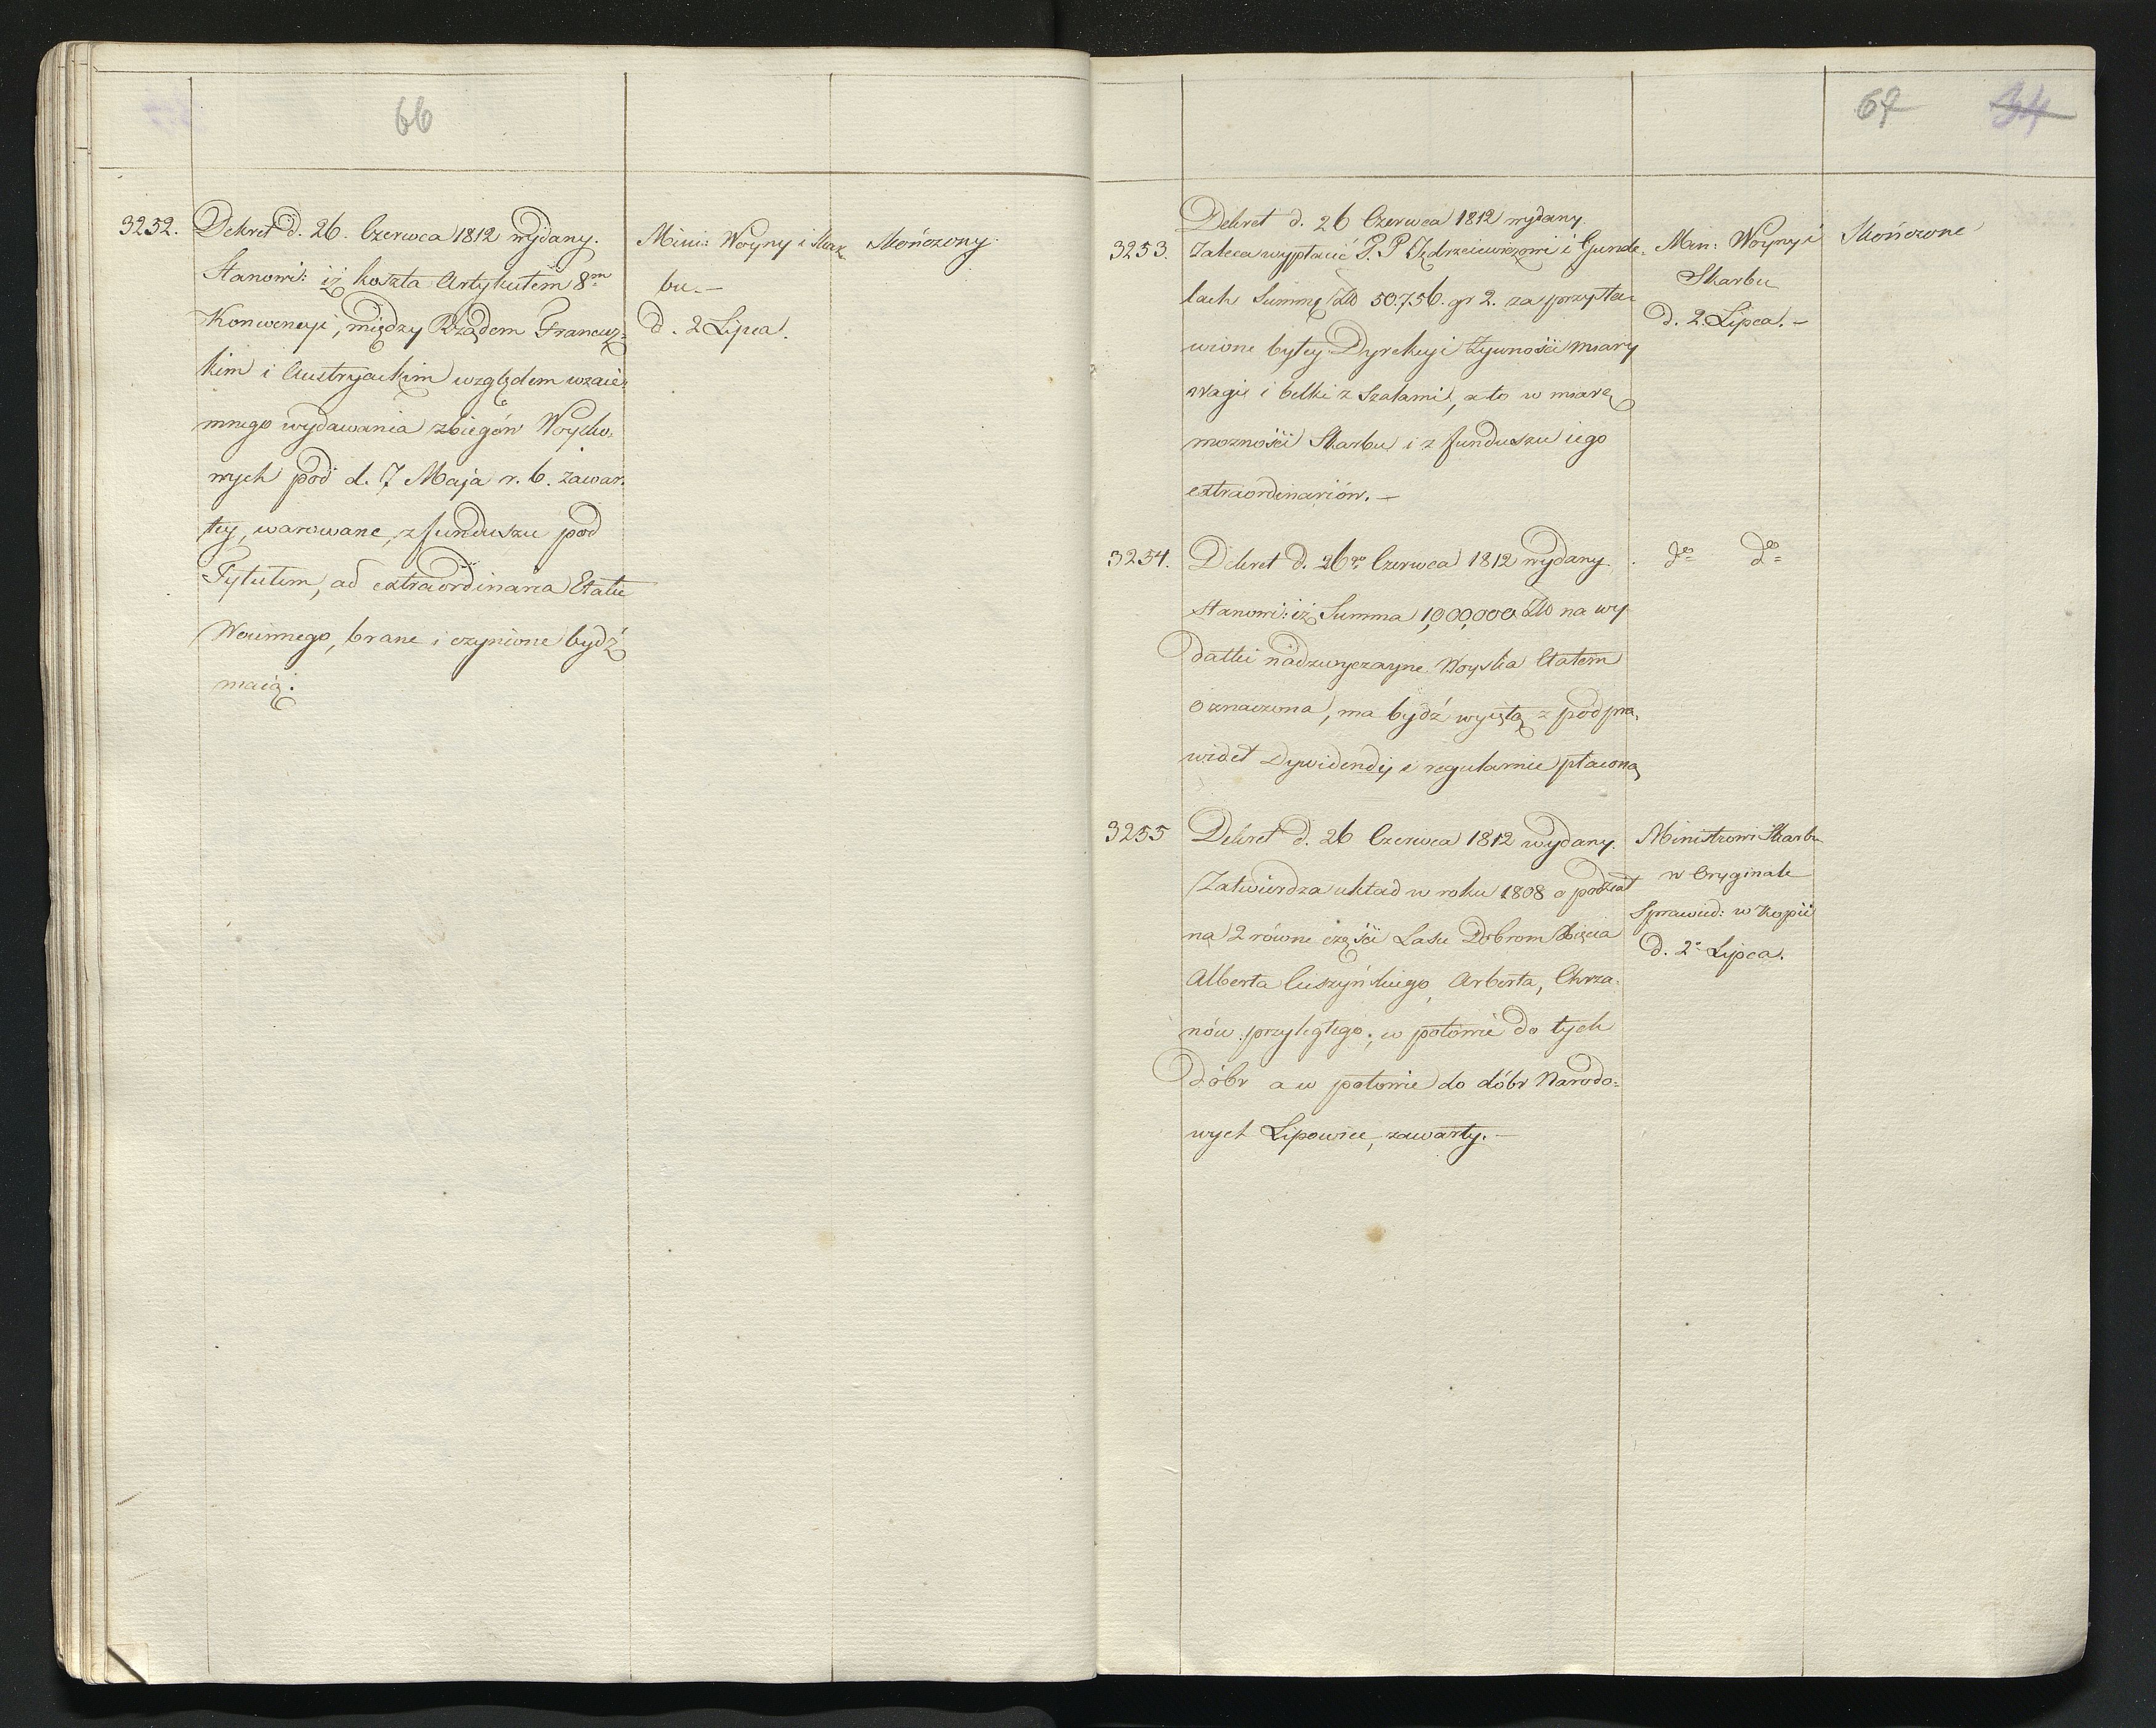 66
3252. Dekret d. 26. Czerwca 1812 wydany.
Stanowi: iż koszta Artykułem 8m
Konwencyi, między Rządem Francuz=
kim i Austryackim względem wzaie=
mnego wydawania zbiegów Woysko=
wych pod d. 7 Maja r. b. zawar=
tey, warowane, z funduszu pod
Tytułem, ad extraordinaria Etatu
Woiennego, brane i czynione bydź
maią.
Mini: Woyny i Skar=
bu.—
d. 2 Lipca.
Skończony.
67 34
Dekret d. 26 Czerwca 1812 wydany.
3253. Zaleca wypłacić P. P Jędrzeiewiczowi i Gunde=
lach Summę Zło 50.756. gr 2. za przysta=
wione byłey Dyrekcyi Żywności miary
wagi i belki z Szalami, a to w miarę
możności Skarbu i z funduszu iego
extraordinariów.—
Min: Woyny i
Skarbu
d. 2. Lipca.—
Skończone
3254. Dekret d. 26go Czerwca 1812 wydany.
Stanowi: iż Summa 1,000,000 Zło na wy
datki nadzwyczayne Woyska Etatem
oznaczona, ma bydź wyiętą z pod pra=
wideł Dywidendy i regularnie płaconą
do do
3255 Dekret d. 26 Czerwca 1812 wydany.
Zatwierdza układ w roku 1808 o podział
na 2 równe części Lasu Dobrom Xięcia
Alberta Cieszyńskiego, Arberta, Chrza=
nów przyległego; w połowie do tych
Dóbr a w połowie do dóbr Narodo=
wych Lipowiec, zawarty.—
Ministrowi Skarbu
w Oryginale
Sprawied: w Kopii
d. 2o Lipca.